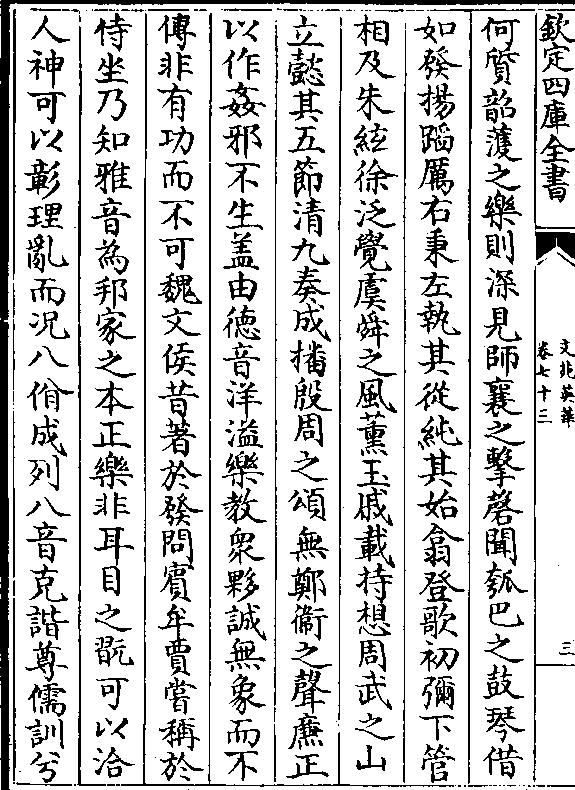 欽定四庫全書
文苑英華
卷七十三
三
何質韶濩之樂則深見師襄之擊磬聞瓠巴之鼓琴借
如發揚蹈厲右秉左執其從純其始翕登歌初彌下管
相及朱絃徐泛覺虞舜之風薫玉戚載持想周武之山
立懿其五節清九奏成播殷周之頌無鄭衞之聲廉正
以作姦邪不生盖由徳音洋溢樂教衆夥誠無象而不
傳非有功而不可魏文侯昔著於發問賓牟賈嘗稱於
侍坐乃知雅音為邦家之本正樂非耳目之翫可以洽
人神可以彰理亂而况八佾成列八音克諧尊儒訓兮